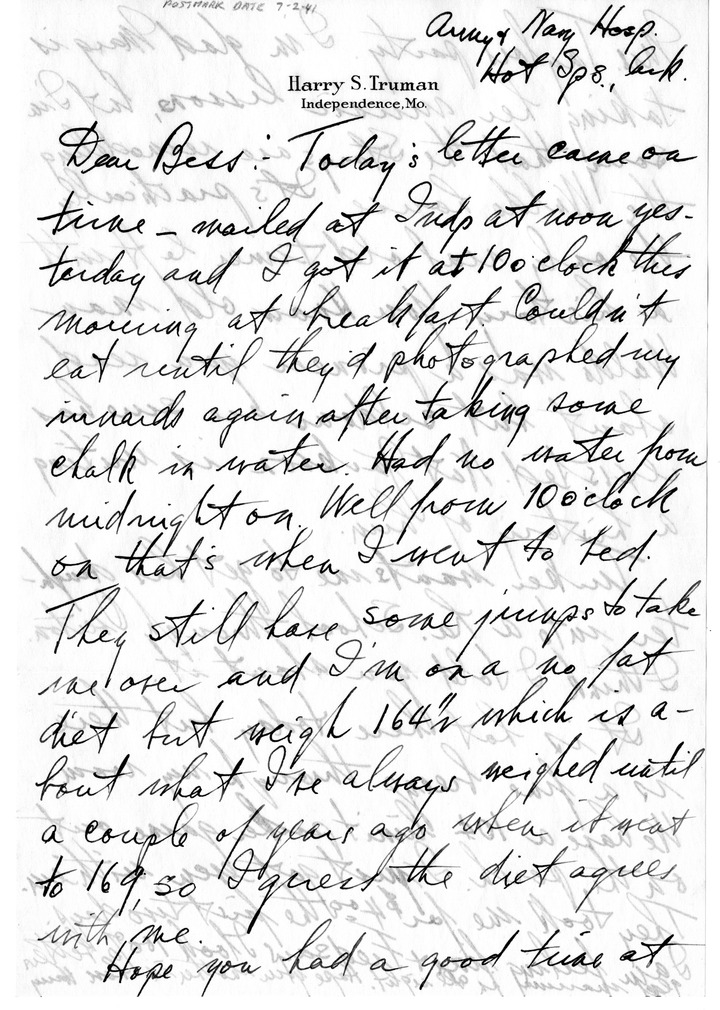 POSTMARK DATE 7-2-41
Army & Navy Hosp.
Hot Spgs., Ark.
Harry S. Truman
Independence, Mo.
Dear Bess:- Today's letter came on
time - mailed at Indp at noon yes-
terday and I got it at 10 o'clock this
morning at breakfast. Couldn't
eat until they'd photographed my
innards again after taking some
chalk in water. Had no water from
midnight on. Well from 10 o'clock
on that's when I went to bed.
They still have some jumps to take
me over and I'm on a no fat
diet but weigh 164½ which is a-
bout what I've always weighed until
a couple of years ago when it went
to 169, so I guess the diet agrees
with me.
Hope you had a good time at